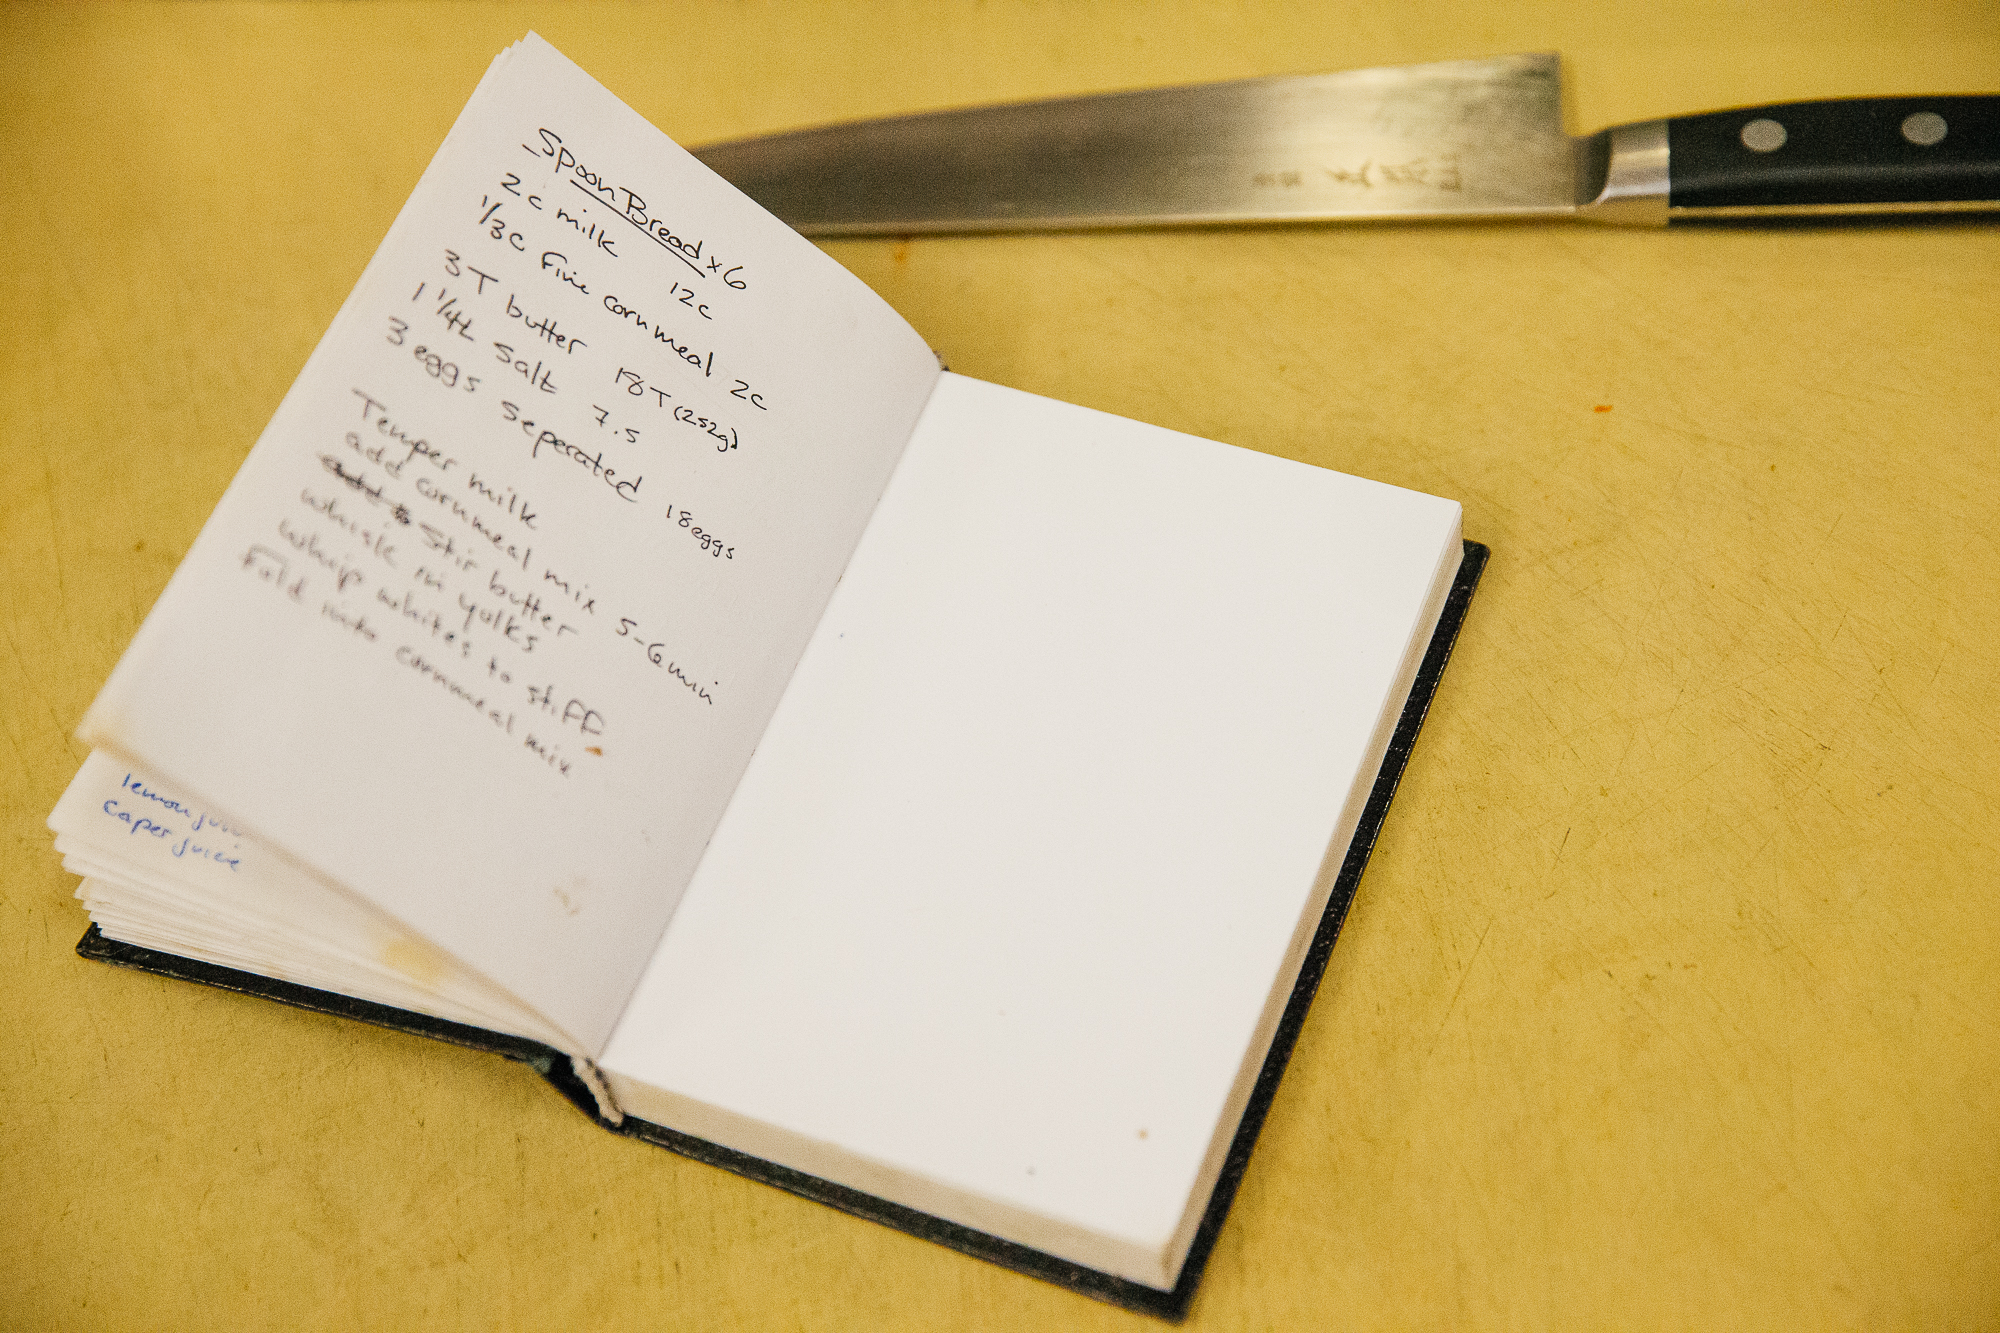 Spoon Bread x6
2 c milk 12c
1/3c fine cornmeal 2c
3 T butter 18T (252g)
1 1/4t salt 7.5
3 eggs seperated 18eggs
Temper milk
add cornmeal mix 5-6min
Stir butter
whisk in yolks
whip whites to stiff
Fold into cornmeal mix
lemon
caper juice